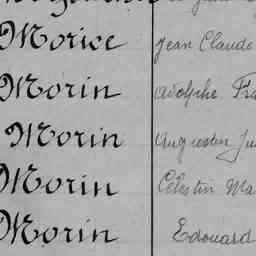 Morice Jean Claude
Morin Adolphe
Morin Augustin
Morin Célestin
Morin Edouard